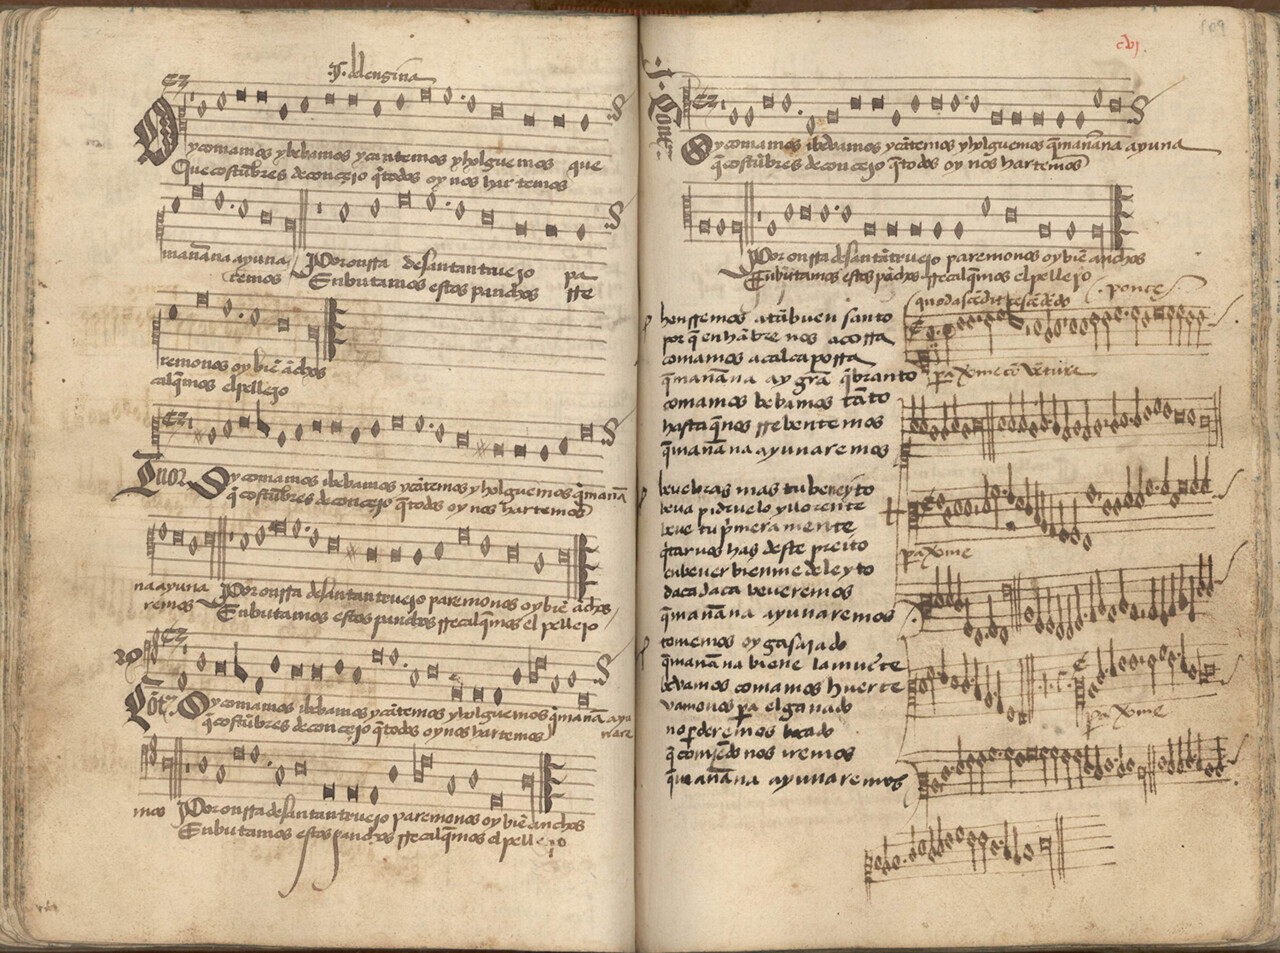 J. del enzina
Oy comamos y bebamos y cantemos y holguemos que
Que costūbres de concejo q̄ todos oy nos hartemos
mañana ayuna Por onrra de santantruejo pa
remos Enbutamos estos panchos rre
remonos oy biē āchos
calq̄mos el pellejo
Tenor Oy comamos i bebamos y cātemos y holguemos q̄ mañā
q̄ costūbres de concejo q̄ todos oy nos hartemos
na ayuna Por onrra de santantruejo paremonos oy biē āchos
remos Enbutamos estos panchos rrecalq̄mos el pellejo
Cōtª. Oy comamos i bebamos y cātemos y holguemos q̄ mañā ayu
q̄ costūbres de concejo q̄ todos oy nos hartemos
mos Por onrra de santantruejo paremonos oy biē anchos
Enbutamos estos panchos rrecalq̄mos el pellejo
cvj.
109
Oy comamos i bebamos y cātemos y holguemos q̄ mañana ayuna
q̄ costūbres de concejo q̄ todos oy nos hartemos
Por onrra de santātruejo paremonos oy biē anchos
Enbutamos estos pāchos rrecalq̄mos el pellejo
honrremos a tā buen santo
por q̄ en hābre nos acorra
comamos a calca porra
q̄ mañana ay grā q̄branto
comamos bebamos tāto
hasta q̄ nos rrebentemos
q̄ mañana ayunaremos
beue bras mas tu beneyto
beva pidruelo y llorente
beve tu pⁱmeramente
q̄tarnos has deste preito
en bever bien me deleyto
daca daca beveremos
q̄ mañana ayunaremos
tomemos oy gasajado
q̄ mañana biene la muerte
bebamos comamos huerte
vamonos pa el ganado
no pderemos bocado
q̄ comiēdo nos iremos
q̄ mañana ayunaremos
ponce